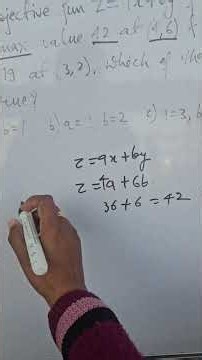 jective fun Z = ax + by
max value 42 at (4,6)
19 at (3,2), which of the
rue?
b=1 b) a= b=2 c) a=3, b
z = ax + by
z = 4a + 6b
36 + 6 = 42